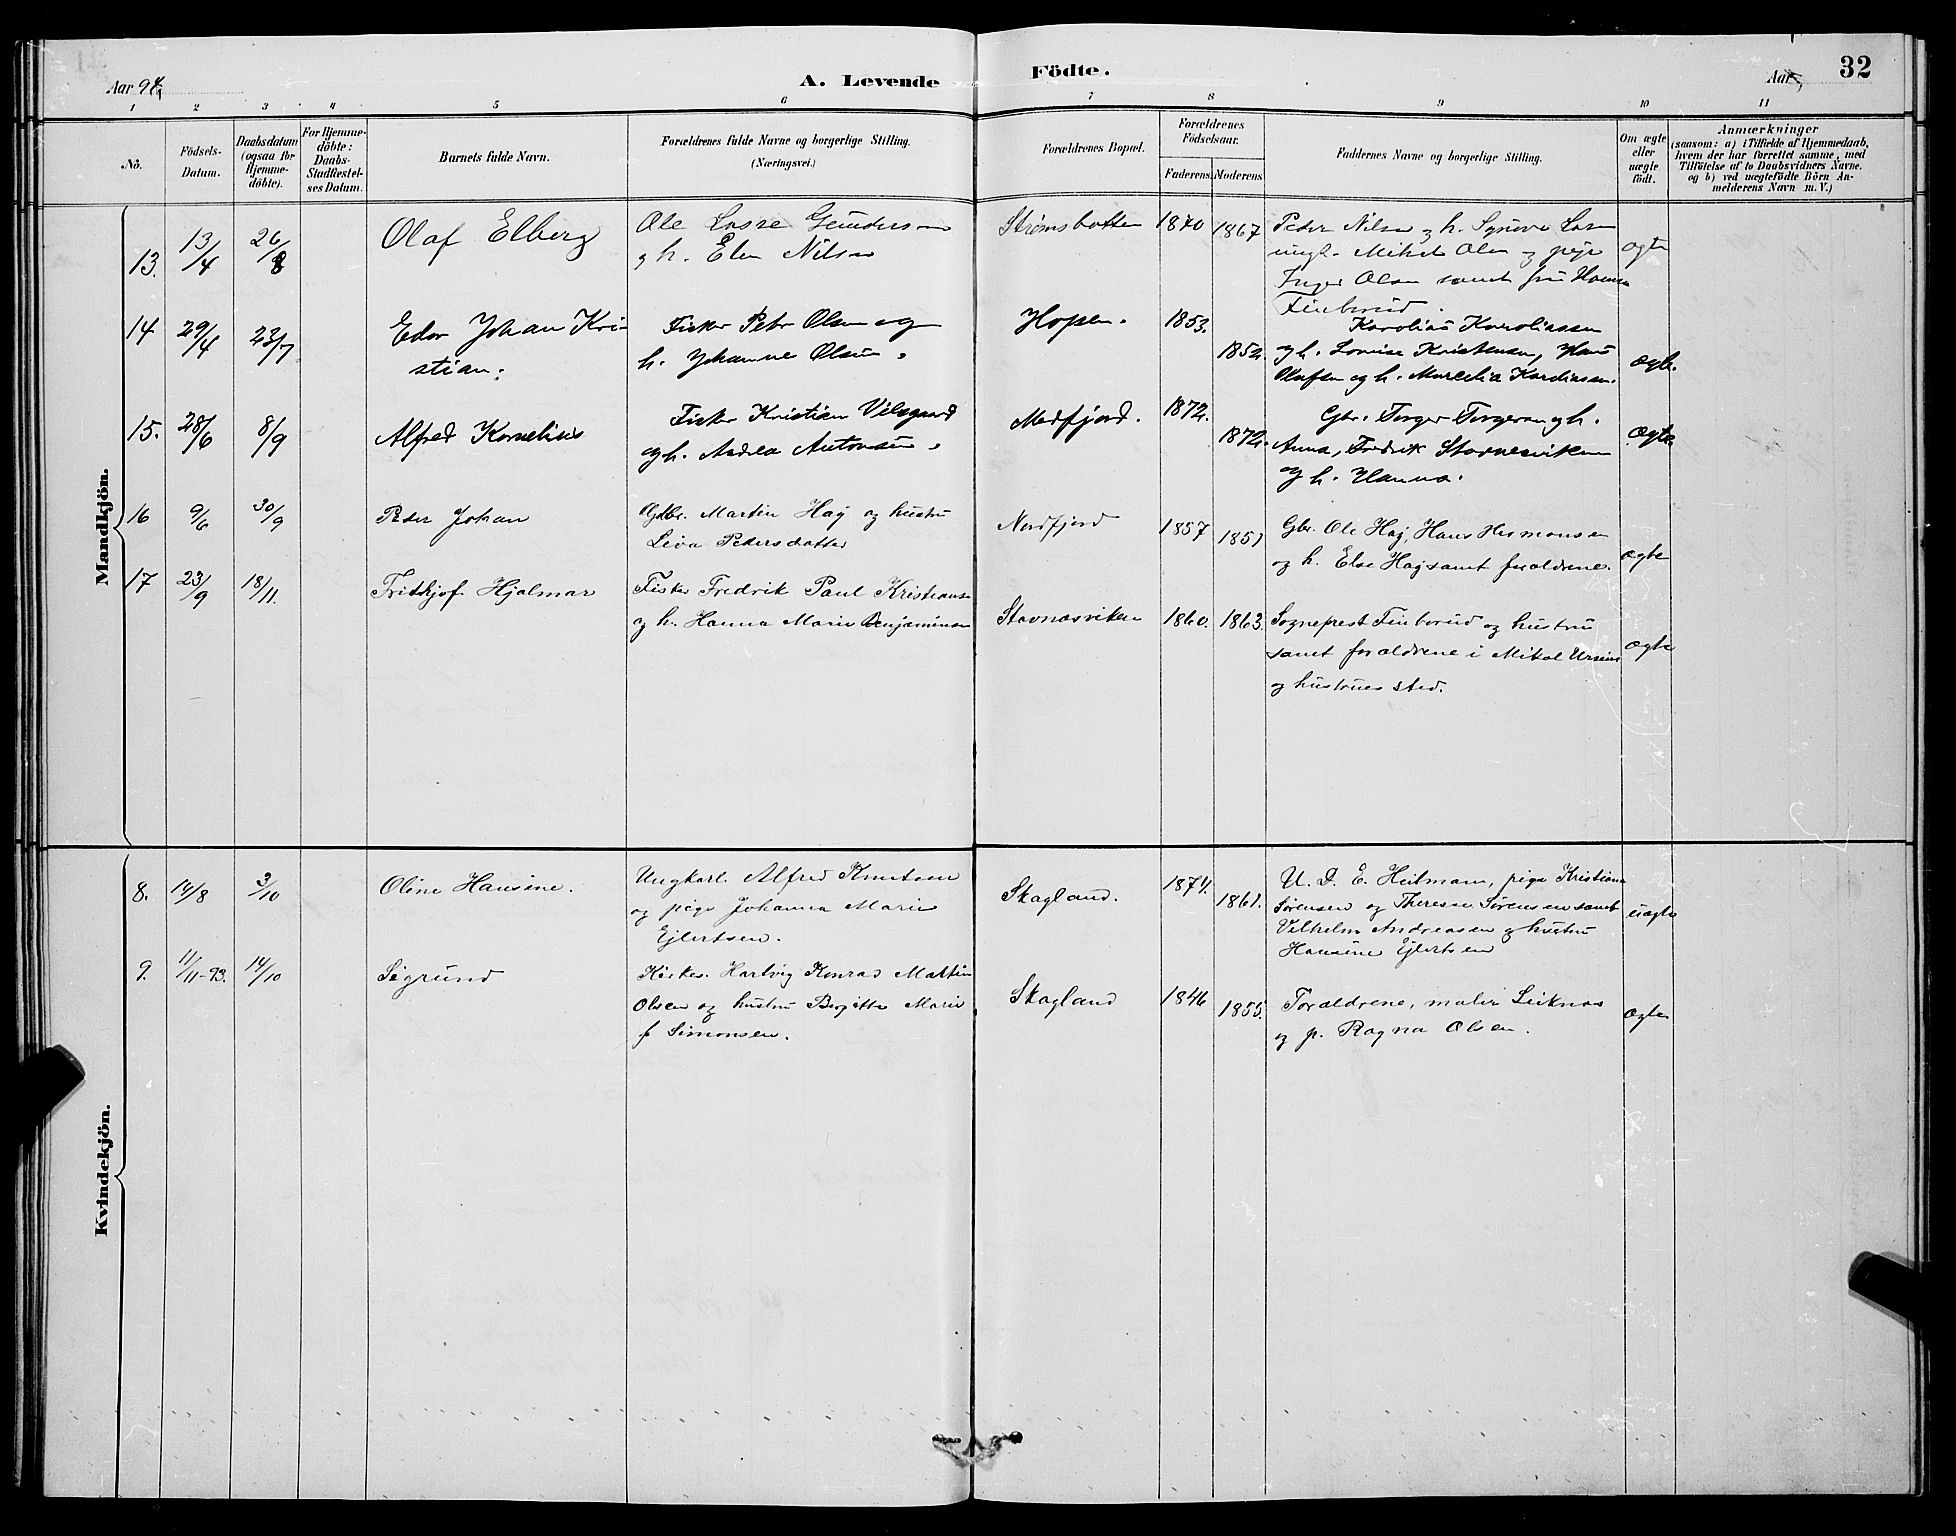 Aar 94
A. Levende
Födte.
Aar
32
1 2 3 4 5 6 7 8 9 10 11
Nö.
Födsels-
Datum.
Daabsdatum
(ogsaa for
Hjemme-
döbte).
For Hjemme-
döbte:
Daabs-
Stadfæstel-
ses Datum.
Barnets fulde Navn.
Forældrenes fulde Navne og borgerlige Stilling.
(Næringsvei.)
Forældrenes Bopæl.
Forældrenes
Födselsaar.
Faderens. Moderens
Faddernes Navne og borgerlige Stilling.
Om ægte
eller
uægte
födt.
Anmærkninger
(saasom: a) i Tilfælde af Hjemmedaab,
hvem der har forrettet samme, med
Tilföielse af to Daabsvidners Navne.
og b) ved uægtefödte Börn An-
melderens Navn m. V.)
Mandkjön.
13. 13/4 26/8
Olaf Elberg
Ole Lasse Gunderson
og h. Elen Nilsen
Strømsbotten
1870 1867
Peder Nilsen og h. Synøve Larsen
ungk. Mikal Olsen og pige
Inger Olsen samt fru Hanna
Finborud.
ægte
14 29/4 23/7
Edor Johan Kri-
stian.
Fisker Peter Olsen og
h. Johanne Olsen.
Hopen.
1853. 1852.
Karolius Karoliussen
og h. Lovise Kristensen, Hans
Olufsen og h. Marcelia Kardiasen.
ægte.
15. 28/6 8/9
Alfred Kornelius
Fisker Kristian Vilsgaard
og h. Andrea Antonsen.
Medfjord.
1872. 1872.
Gbr. Torger Torgersen og h.
Anna, Fredrik Stovnesviken
og h. Hanna.
ægte
16 9/6 30/9
Peder Johan
Gdbr. Martin Hag og hustru
Leva Pedersdatter
Nordfjord
1857 1851
Gbr. Ole Haj, Hans Hermansen
og h. Else Haj samt forældrene.
ægte
17 23/9 18/11.
Fridtjof Hjalmar
Fisker Fredrik Paul Kristiansen
og h. Hanna Marie Benjaminsen
Stovnæsviken
1860. 1863.
Sogneprest Finborud og hustru
samt forældrene i Mikal Ursins
og hustrues sted.
ægte
Kvindekjön.
8. 14/8 3/10
Oline Hansine.
Ungkarl. Alfred Knutsen
og pige Johanna Marie
Ejlertsen.
Skagland.
1874. 1861.
U. D. E. Heitmann, pige Kristiane
Sørensen og Therese Sørensen samt
Vilhelm Andreassen og hustru
Hansine Ejlertsen
uægte
9. 11/11-93. 14/10
Sigrund
Kirkes. Hartvig Konrad Martin
Olsen og hustru Bergitte Marie
f Simonsen.
Skagland
1846 1855.
Forældrene, maler Leiknes
og p. Ragna Olsen.
ægte